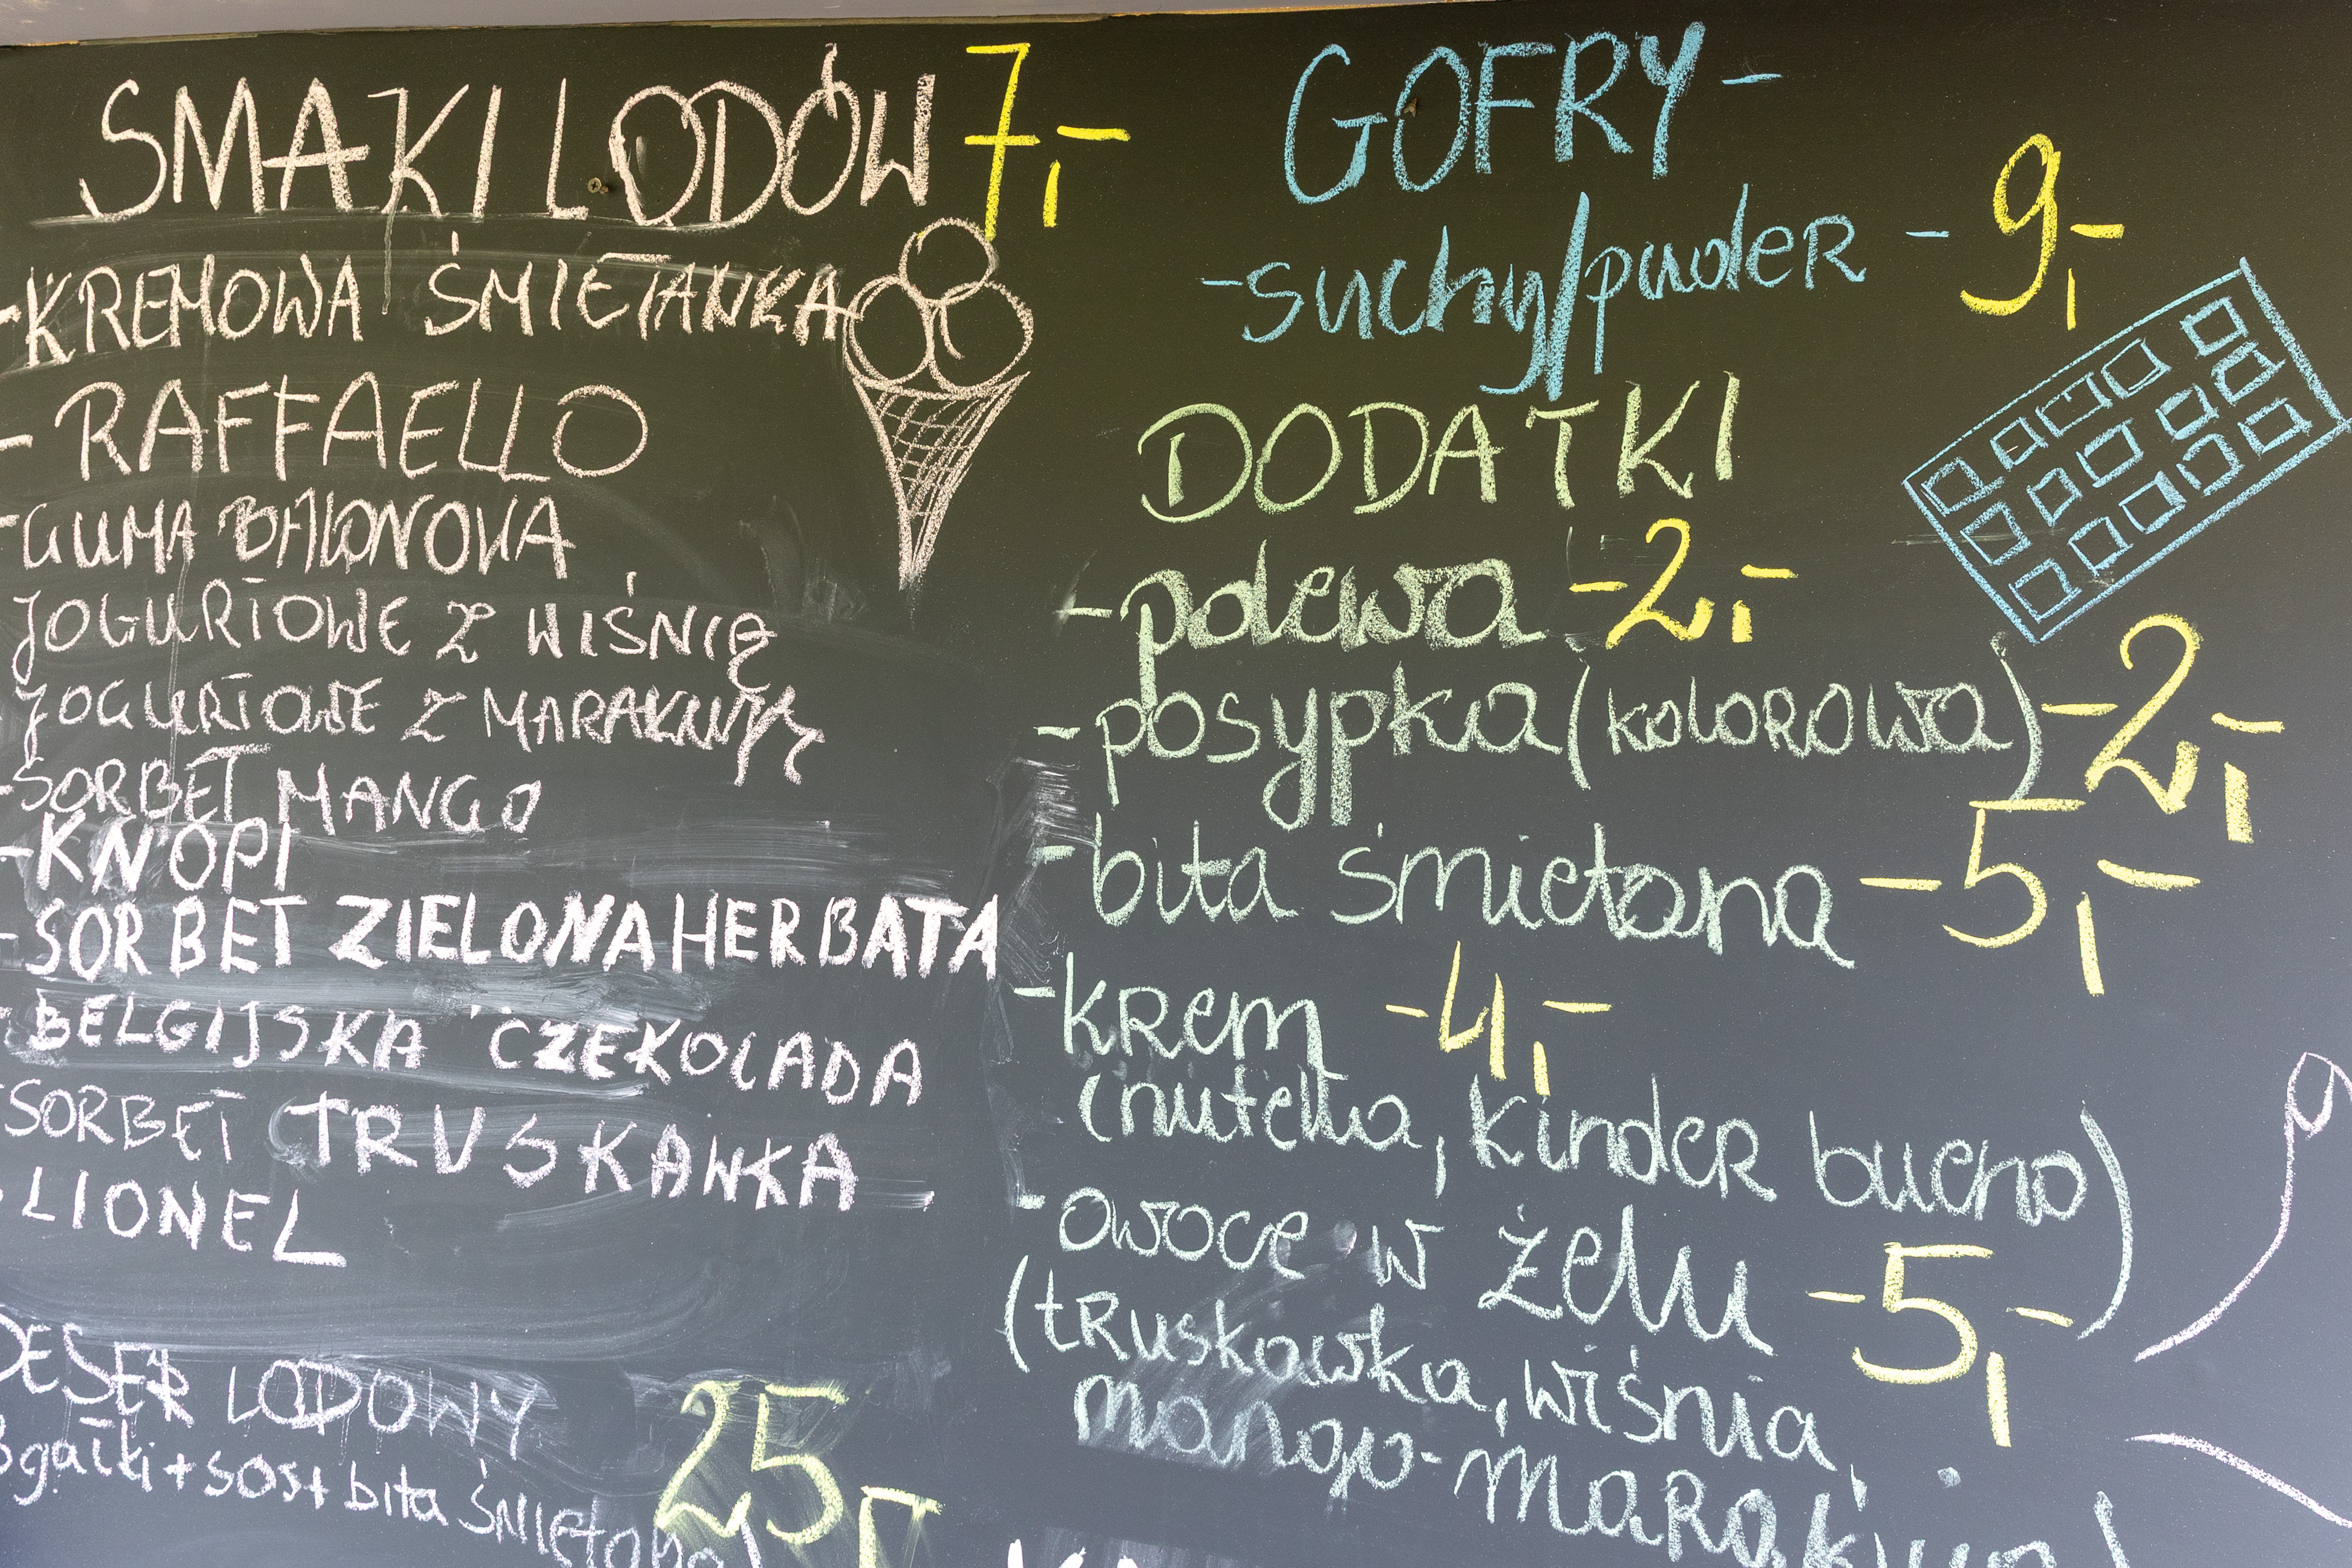 SMAKI LODÓW 7,-
-KREMOWA ŚMIETANKA
- RAFFAELLO
-GUMA BALONOWA
JOGURTOWE Z WIŚNIĄ
JOGURTOWE Z MARAKUJĄ
-SORBET MANGO
-KNOPI
-SORBET ZIELONA HERBATA
-BELGIJSKA CZEKOLADA
-SORBET TRUSKAWKA
-LIONEL
DESER LODOWY 25,-
3gałki+sos+bita śmietana
GOFRY-
-suchy/puder - 9,-
DODATKI
-polewa -2,-
-posypka(kolorowa)-2,-
-bita śmietana -5,-
-krem -4,-
(nutella, kinder bueno)
-owoce w żelu -5,-
(truskawka, wiśnia,
mango-marakuja)